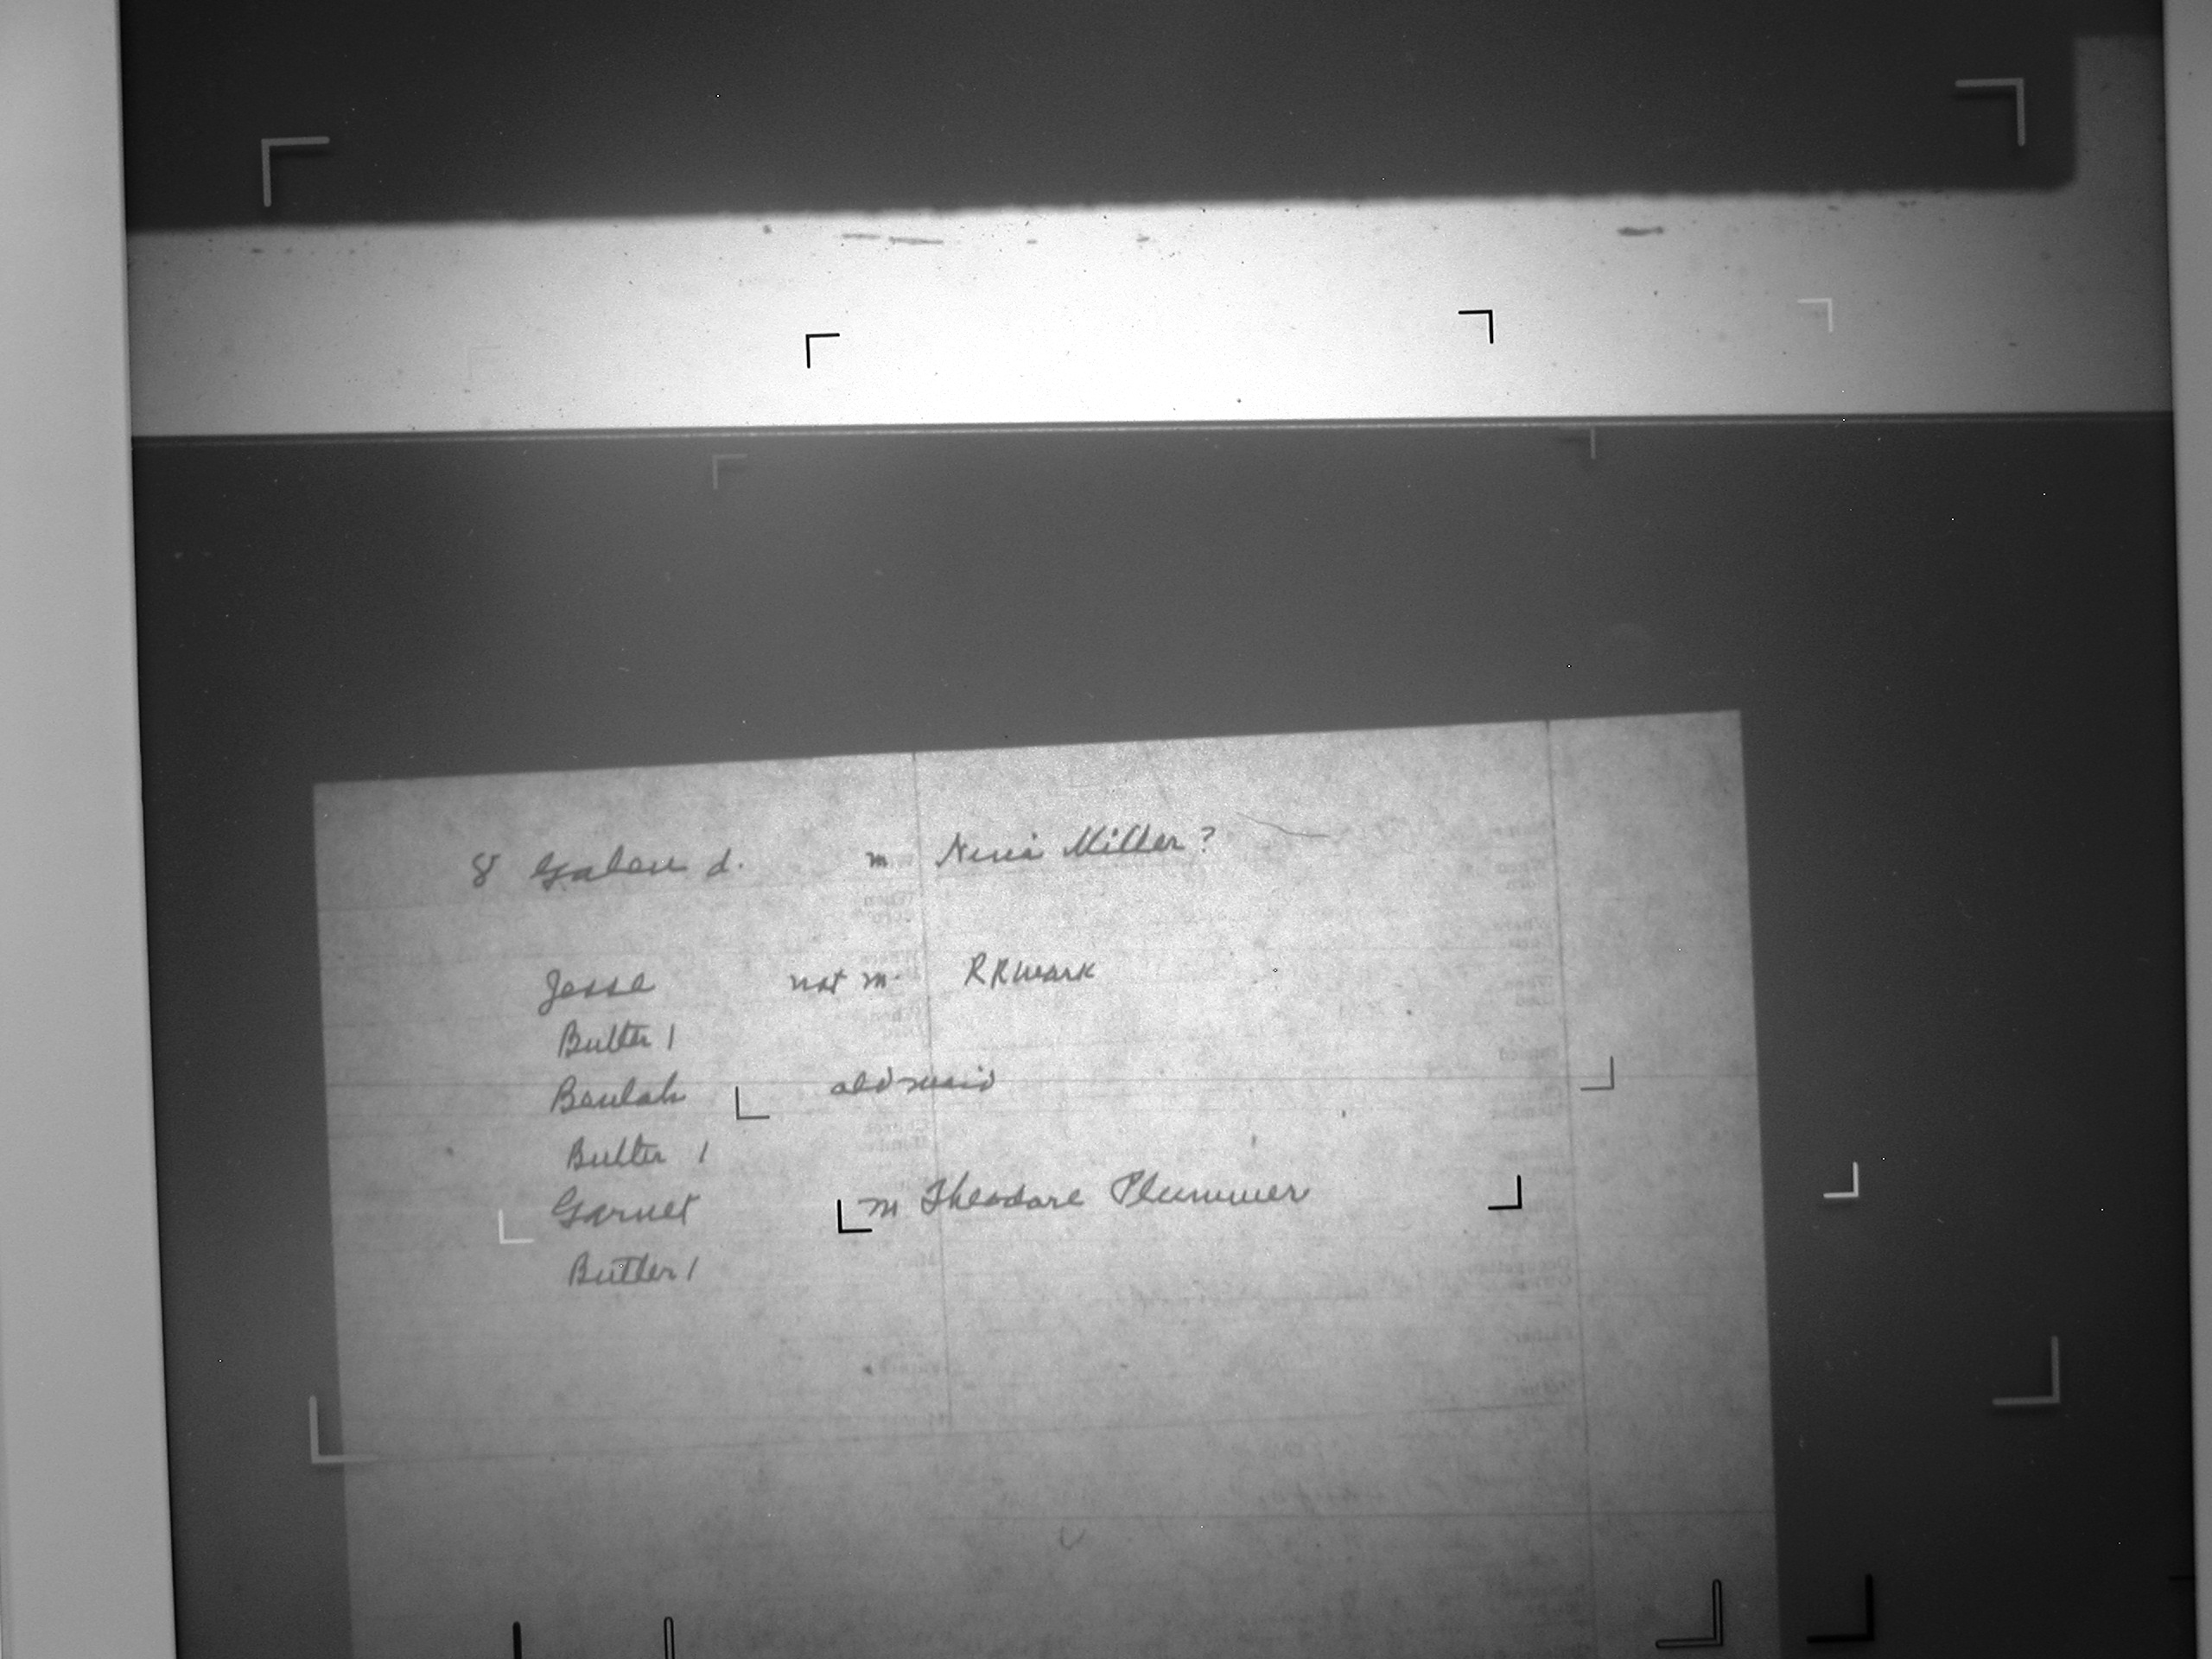 8 Galen d. m Nina Miller ?
Jesse not m. RRwark
Butler 1
Beulah old maid
Butler 1
Garnet m Theodore Plummer
Butler 1